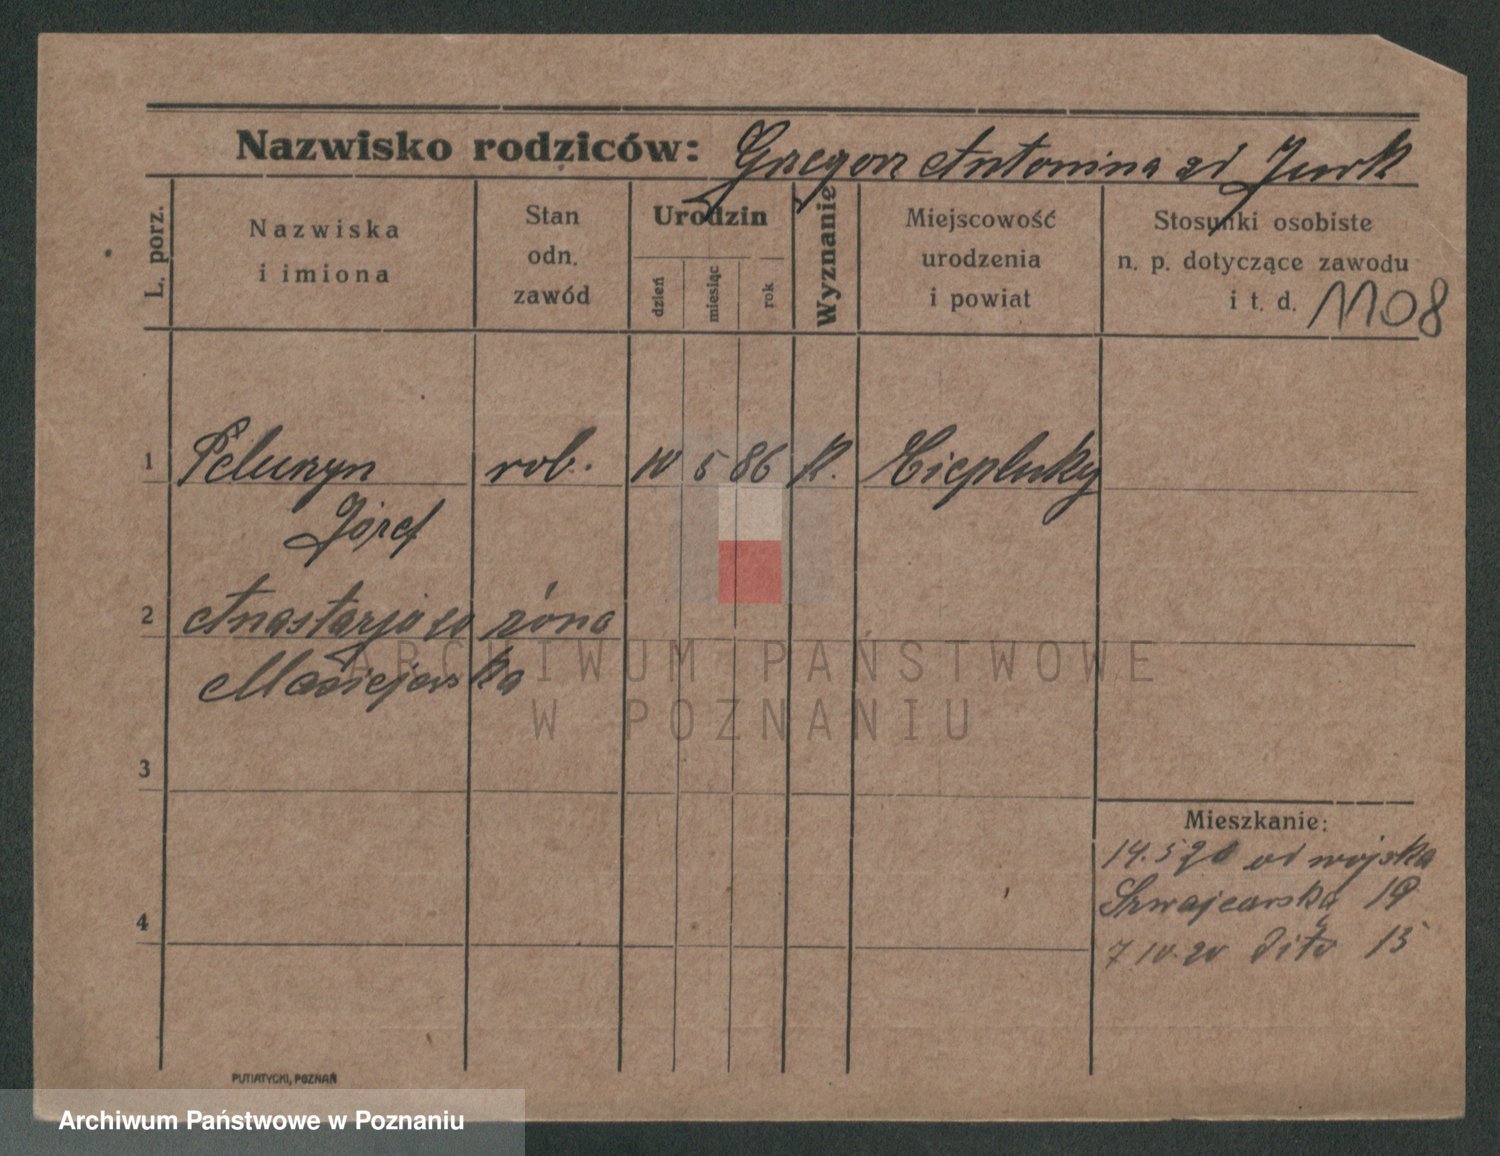 Nazwisko rodziców: Grzegorz Antonina zd Jurk
L. porz.
Nazwiska
i imiona
Stan
odn.
zawód
Urodzin
dzień
miesiąc
rok
Wyznanie
Miejscowość
urodzenia
i powiat
Stosunki osobiste
n. p. dotyczące zawodu
i t. d. 1108
1 rob. 10 5 86 k.
Józef
2 Anastazja zd żona
Maciejewska
3
4
Mieszkanie:
14.5 20 od wojska
Szwajcarska 19
7 10.20 dito 15
PUTIATYCKI, POZNAŃ
ARCHIWUM PAŃSTWOWE
W POZNANIU
Archiwum Państwowe w Poznaniu